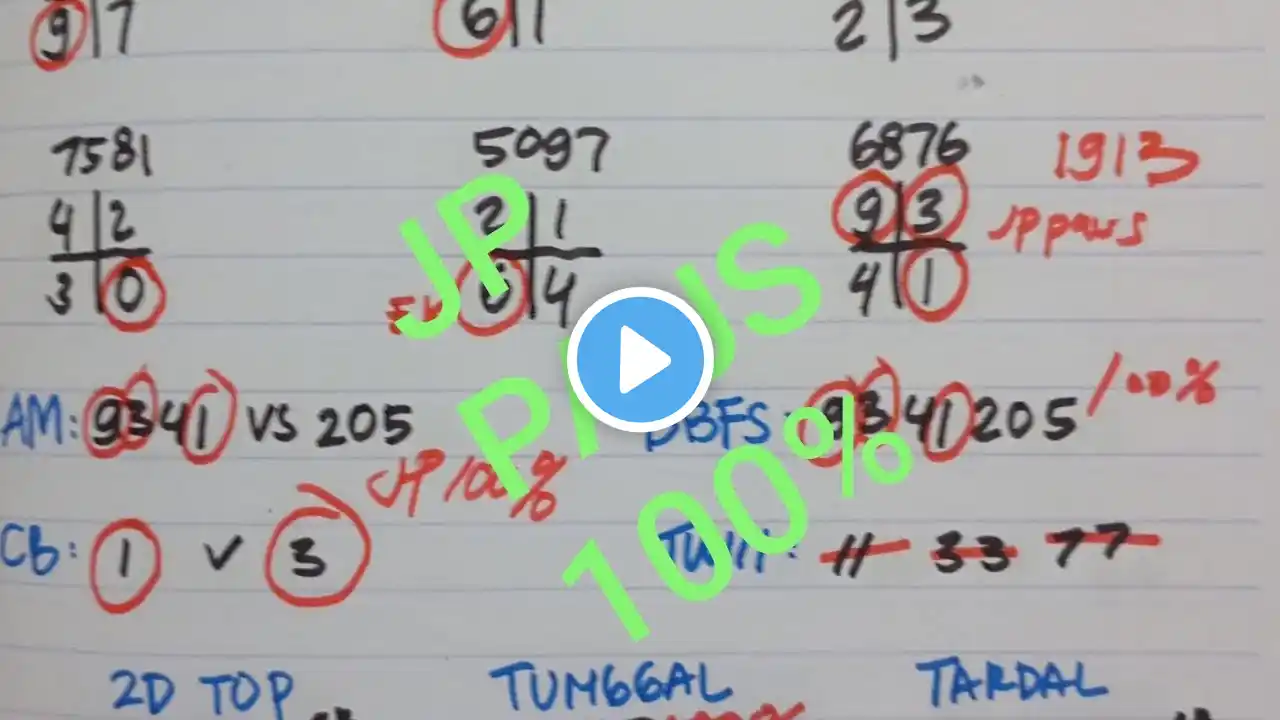 9|7 6|1 2|3
7581 5097 6876 1913
4|2 2|1 9|3 JP paus
3|0 4 4|1
AM: 9341 VS 205 BBFS: 9341205 / 100%
JP 100%
CB: 1 v 3 TWIN: 11 33 77
2D TOP TUNGGAL TARDAL
JP
PAUS
100%